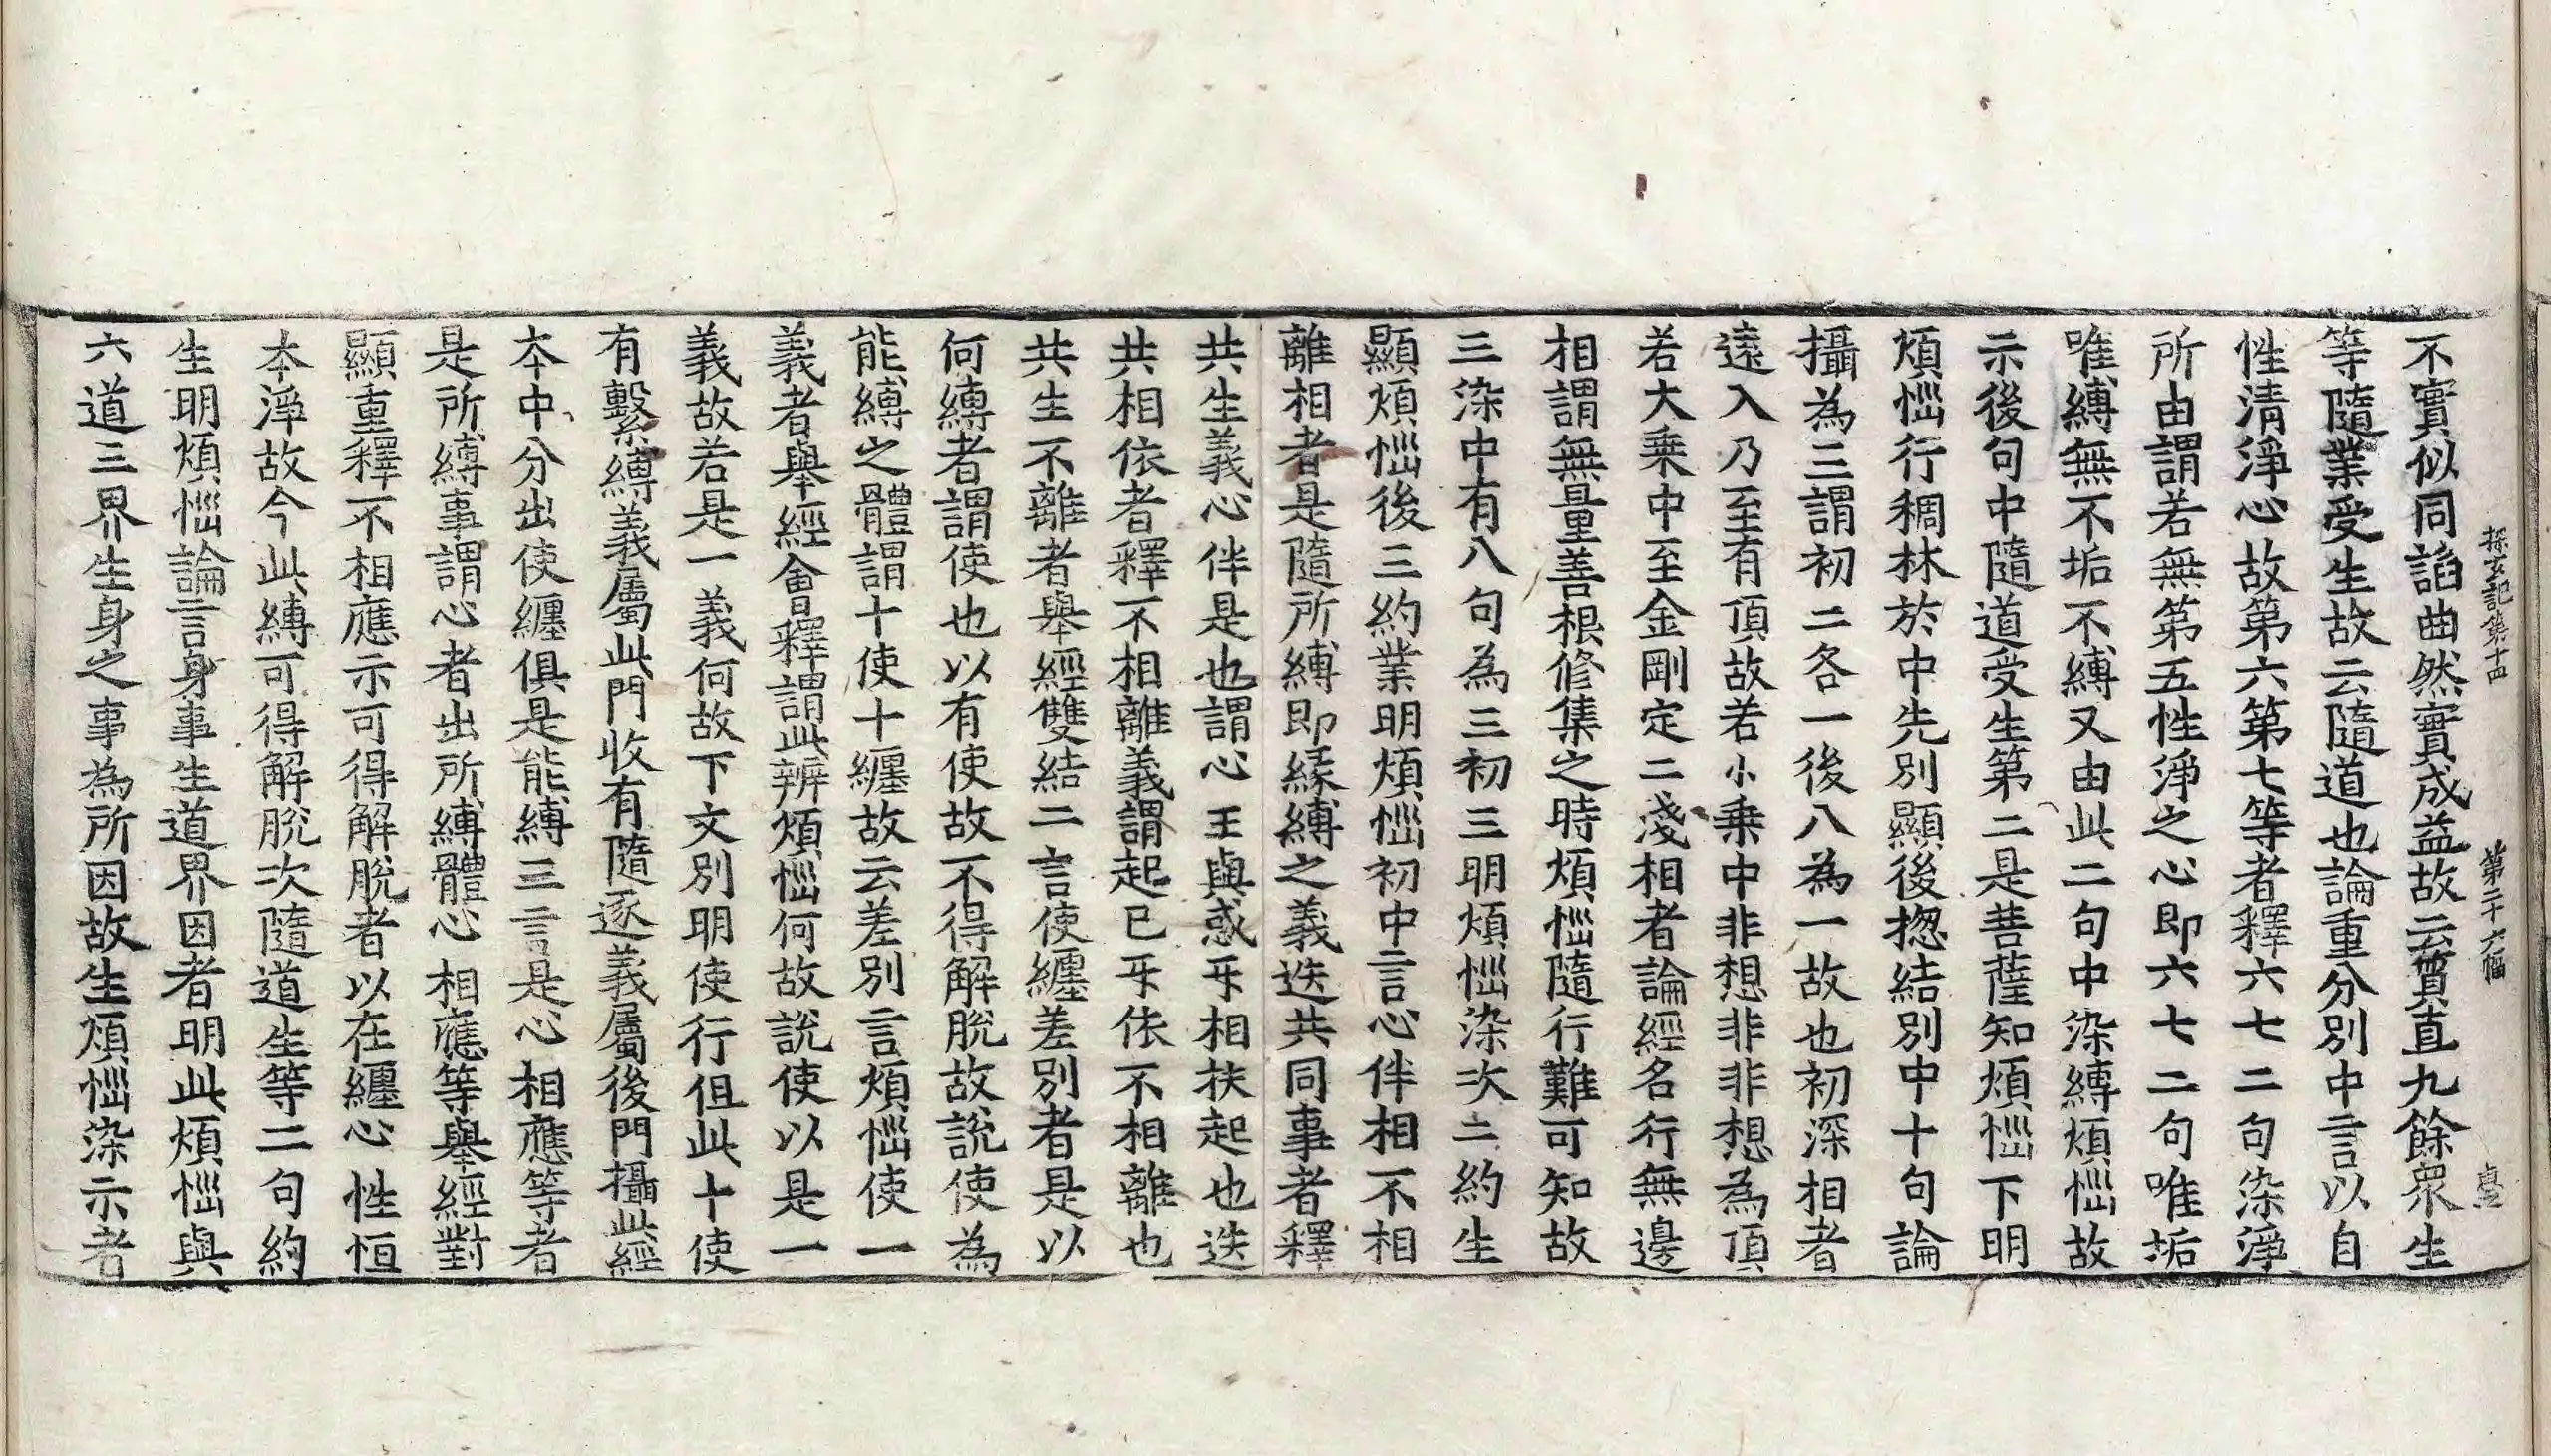 探玄記第十四　第二十六幅　臺
不實似同諂曲然實成益故云質直九餘衆生
等隨業受生故云隨道也論重分別中言以自
性清淨心故第六第七等者釋六七二句染淨
所由謂若無第五性淨之心即六七二句唯垢
唯縛無不垢不縛又由此二句中染縛煩惱故
示後句中隨道受生第二是菩薩知煩惱下明
煩惱行稠林於中先別顯後揔結別中十句論
攝為三謂初二各一後八為一故也初深相者
遠入乃至有頂故若小乗中非想非非想為頂
若大乗中至金剛定二淺相者論經名行無邊
相謂無量善根修集之時煩惱隨行難可知故
三染中有八句為三初三明煩惱染次二約生
顯煩惱後三約業明煩惱初中言心伴相不相
離相者是隨所縛即緣縛之義迭共同事者釋
共生義心伴是也謂心王與惑㸦相扶起也迭
共相依者釋不相離義謂起已㸦依不相離也
共生不離者舉經雙結二言使纏差別者是以
何縛者謂使也以有使故不得解脫故說使為
能縛之體謂十使十纏故云差別言煩惱使一
義者舉經會釋謂此辨煩惱何故說使以是一
義故若是一義何故下文別明使行但此十使
有繫縛義屬此門收有隨逐義屬後門攝此經
本中分出使纏俱是能縛三言是心相應等者
是所縛事謂心者出所縛體心相應等舉經對
顯重釋不相應示可得解脫者以在纏心性恒
本淨故今此縛可得解脫次隨道生等二句約
生明煩惱論言身事生道界因者明此煩惱與
六道三界生身之事為所因故生煩惱染示者